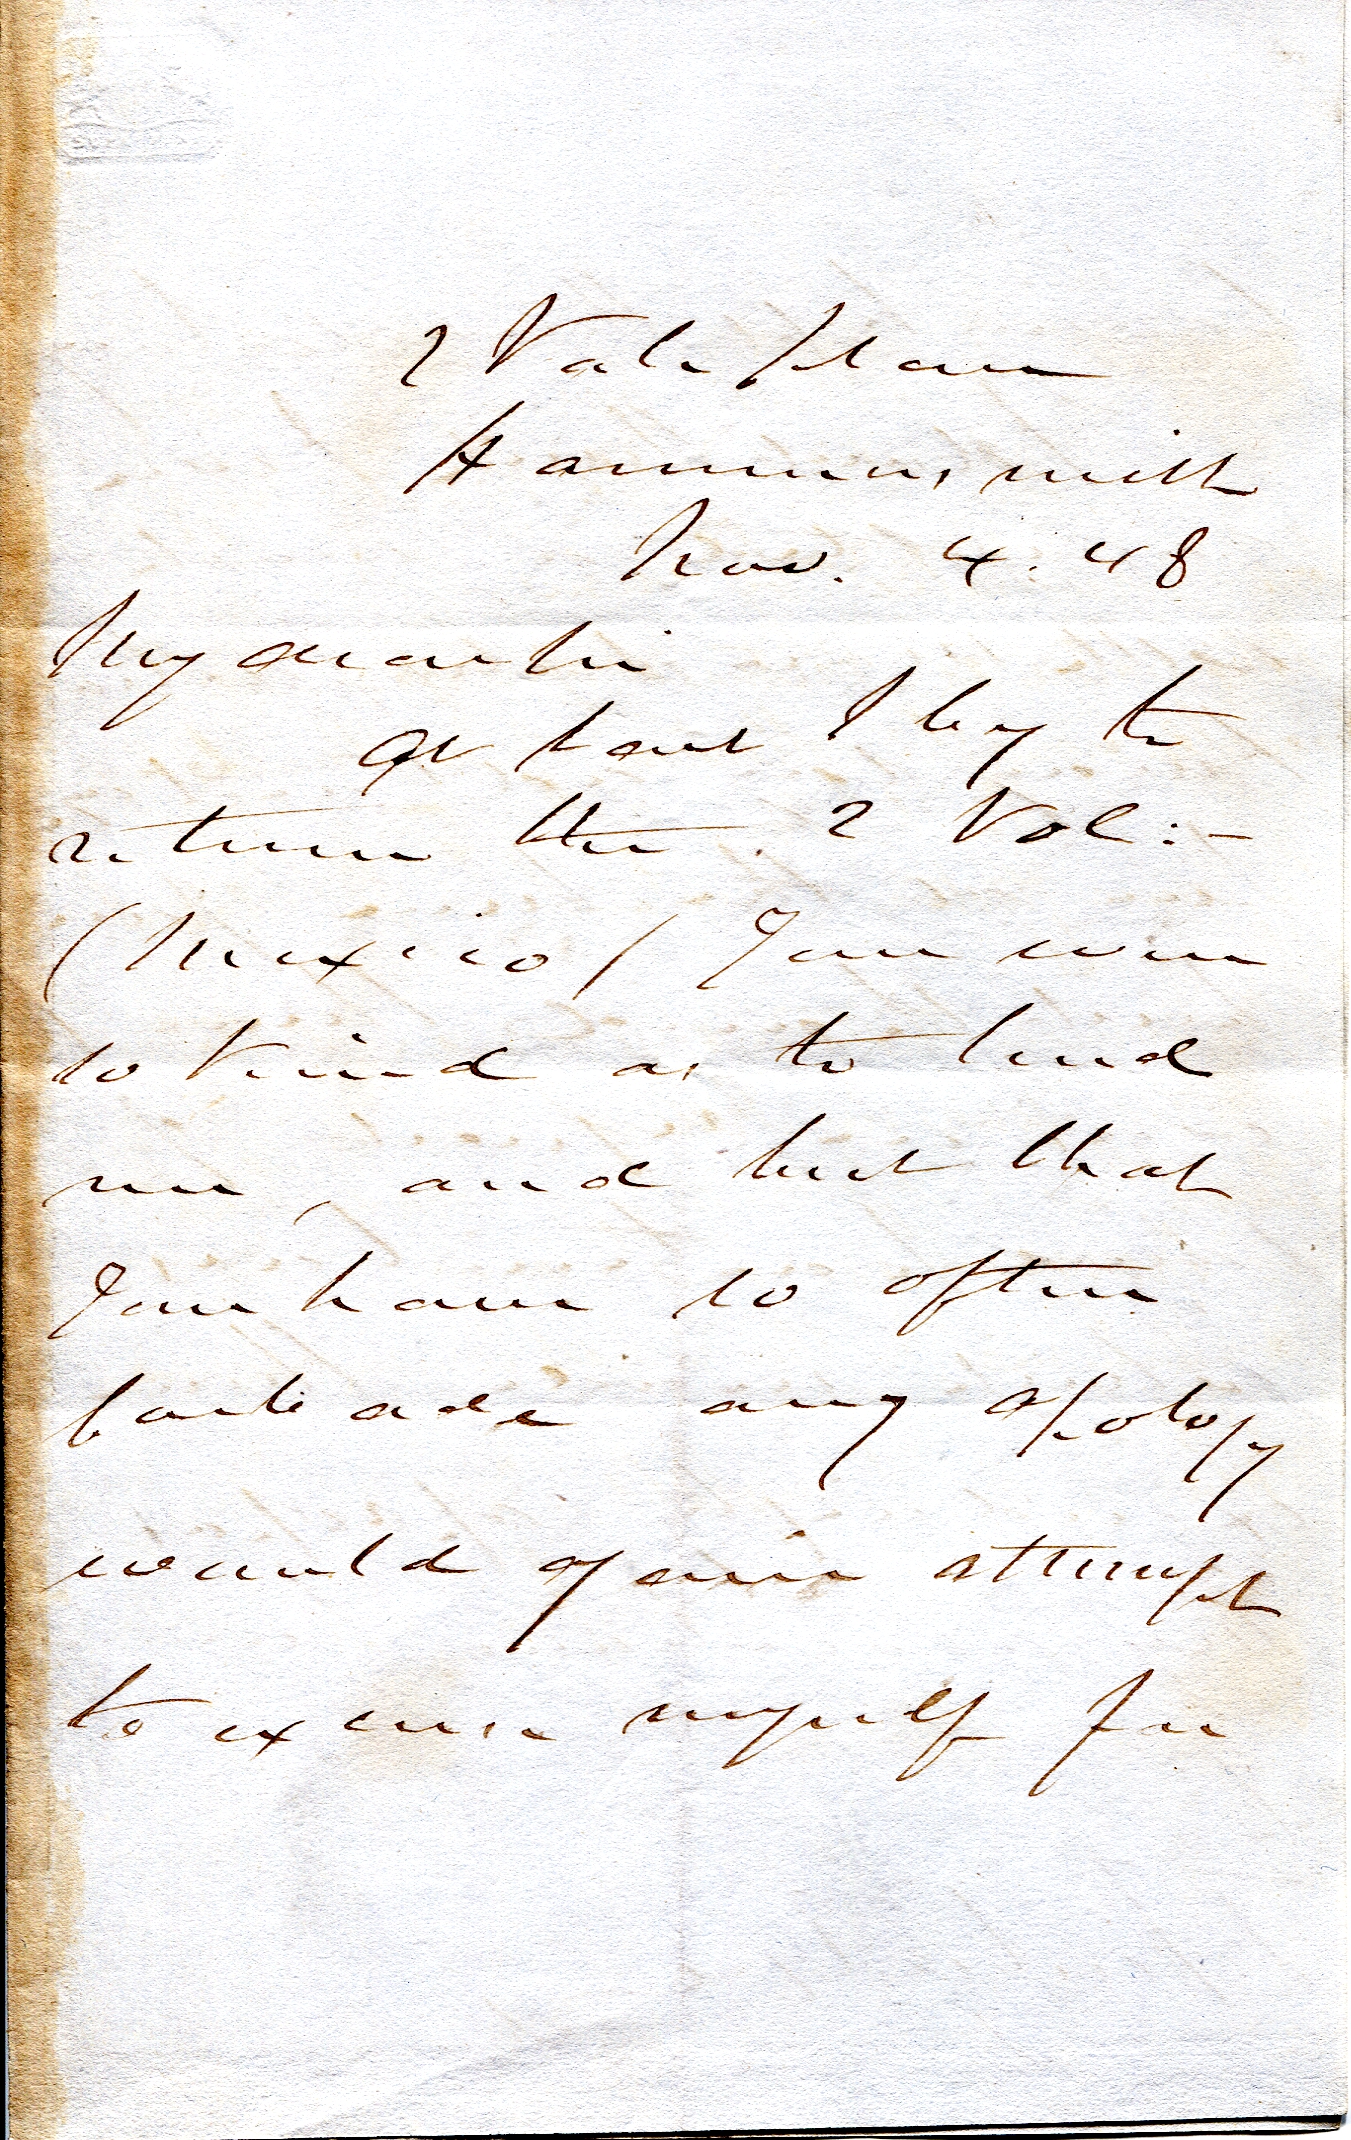 2 Vale place
Hammersmith
Nov. 4. 48
My dear Sir
At last I beg to
return the 2 Vol:-
(Mexico) You were
so kind as to lend
me, and but that
You have so often
forbade any apology
would again attempt
to excuse myself for